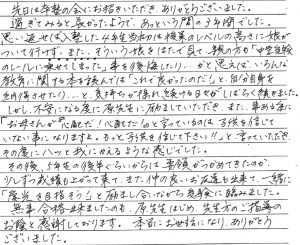 先日は卒塾の会にお招きいただき、ありがとうございました。
過ぎてみると長かったようで、あっという間の3年間でした。
思い返せば入塾した4年生当初は授業のレベルの高さに娘が
ついて行けず、また、そういう娘をはたで見て、親の方が「中学受験
のレールに乗せてしまった」事を後悔したり…かと思えば、いろんな
教育に関する本を読んでは「これで良かったのだ」と、自分自身を
納得させたり…と、気持ちが揺れ続ける日々がしばらく続きました。
しかし不安になる度に原先生に励ましていただき、また、事ある毎に
「お母さんが“心配だ”“心配だ”と言っているのは、子供を信じて
いない事になりますよ。もっと子供を信じて下さい!!」と言っていただき、
その度にハッと我にかえるような思いでした。
その後、5年生の後半ぐらいからは要領がつかめてきたのか、
少しずつ成績も上がって来て、また仲の良いお友達も出来て、一緒に
「慶先を目指そう」と励まし合いながら受験に臨みました。
無事合格出来ましたのも、原先生はじめ、先生方のご指導の
お陰と感謝しております。本当にお世話になり、ありがとう
ございました。